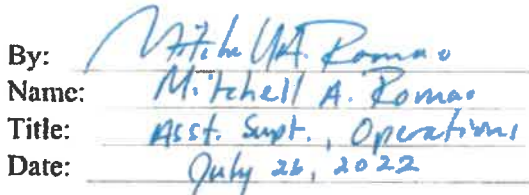 By: Mitchell A. Romao
Name: Mitchell A. Romao
Title: Asst. Supt., Operations
Date: July 26, 2022